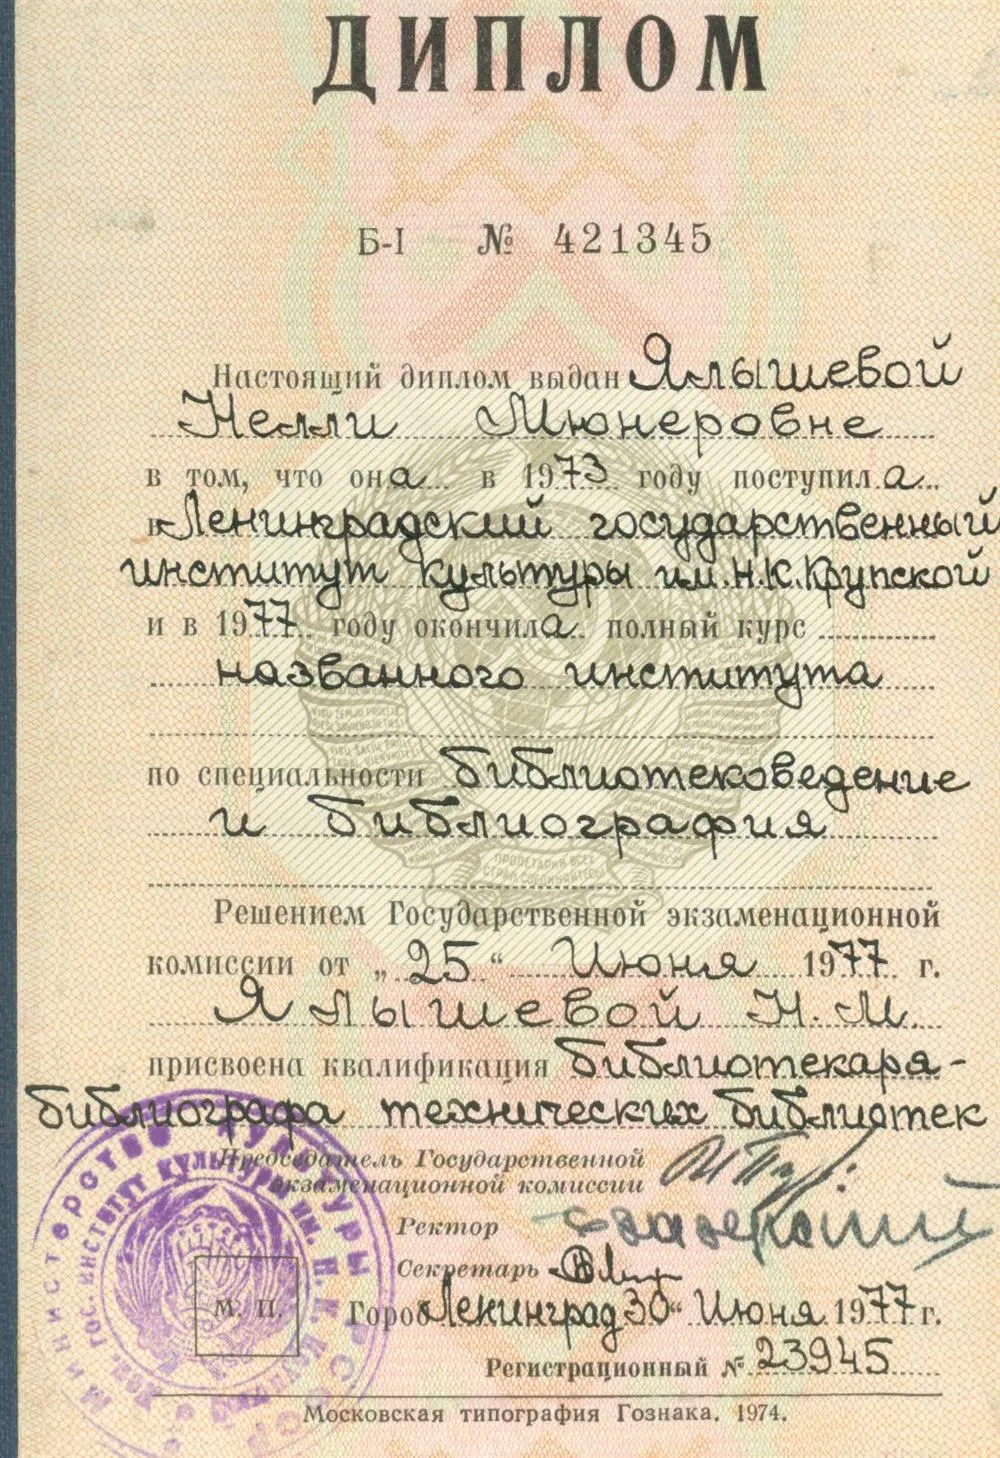 ДИПЛОМ
Б-I № 421345
Настоящий диплом выдан Ялышевой
Нелли Мюнеровне
в том, что она в 1973 году поступила
в Ленинградский государственный
институт культуры им. Н.К. Крупской
и в 1977 году окончила полный курс
названного института
по специальности библиотековедение
и библиография
Решением Государственной экзаменационной
комиссии от „25“ Июня 1977 г.
Ялышевой Н.М.
присвоена квалификация библиотекаря-
библиографа технических библиотек
Председатель Государственной
экзаменационной комиссии
Ректор
Секретарь
Город Ленинград 30“ Июня 1977 г.
М. П.
Регистрационный № 23945
Московская типография Гознака. 1974.
Министерство культуры
гос. институт культуры им. Н. К.
ПРОЛЕТАРИИ ВСЕХ
СТРАН, СОЕДИНЯЙТЕСЬ